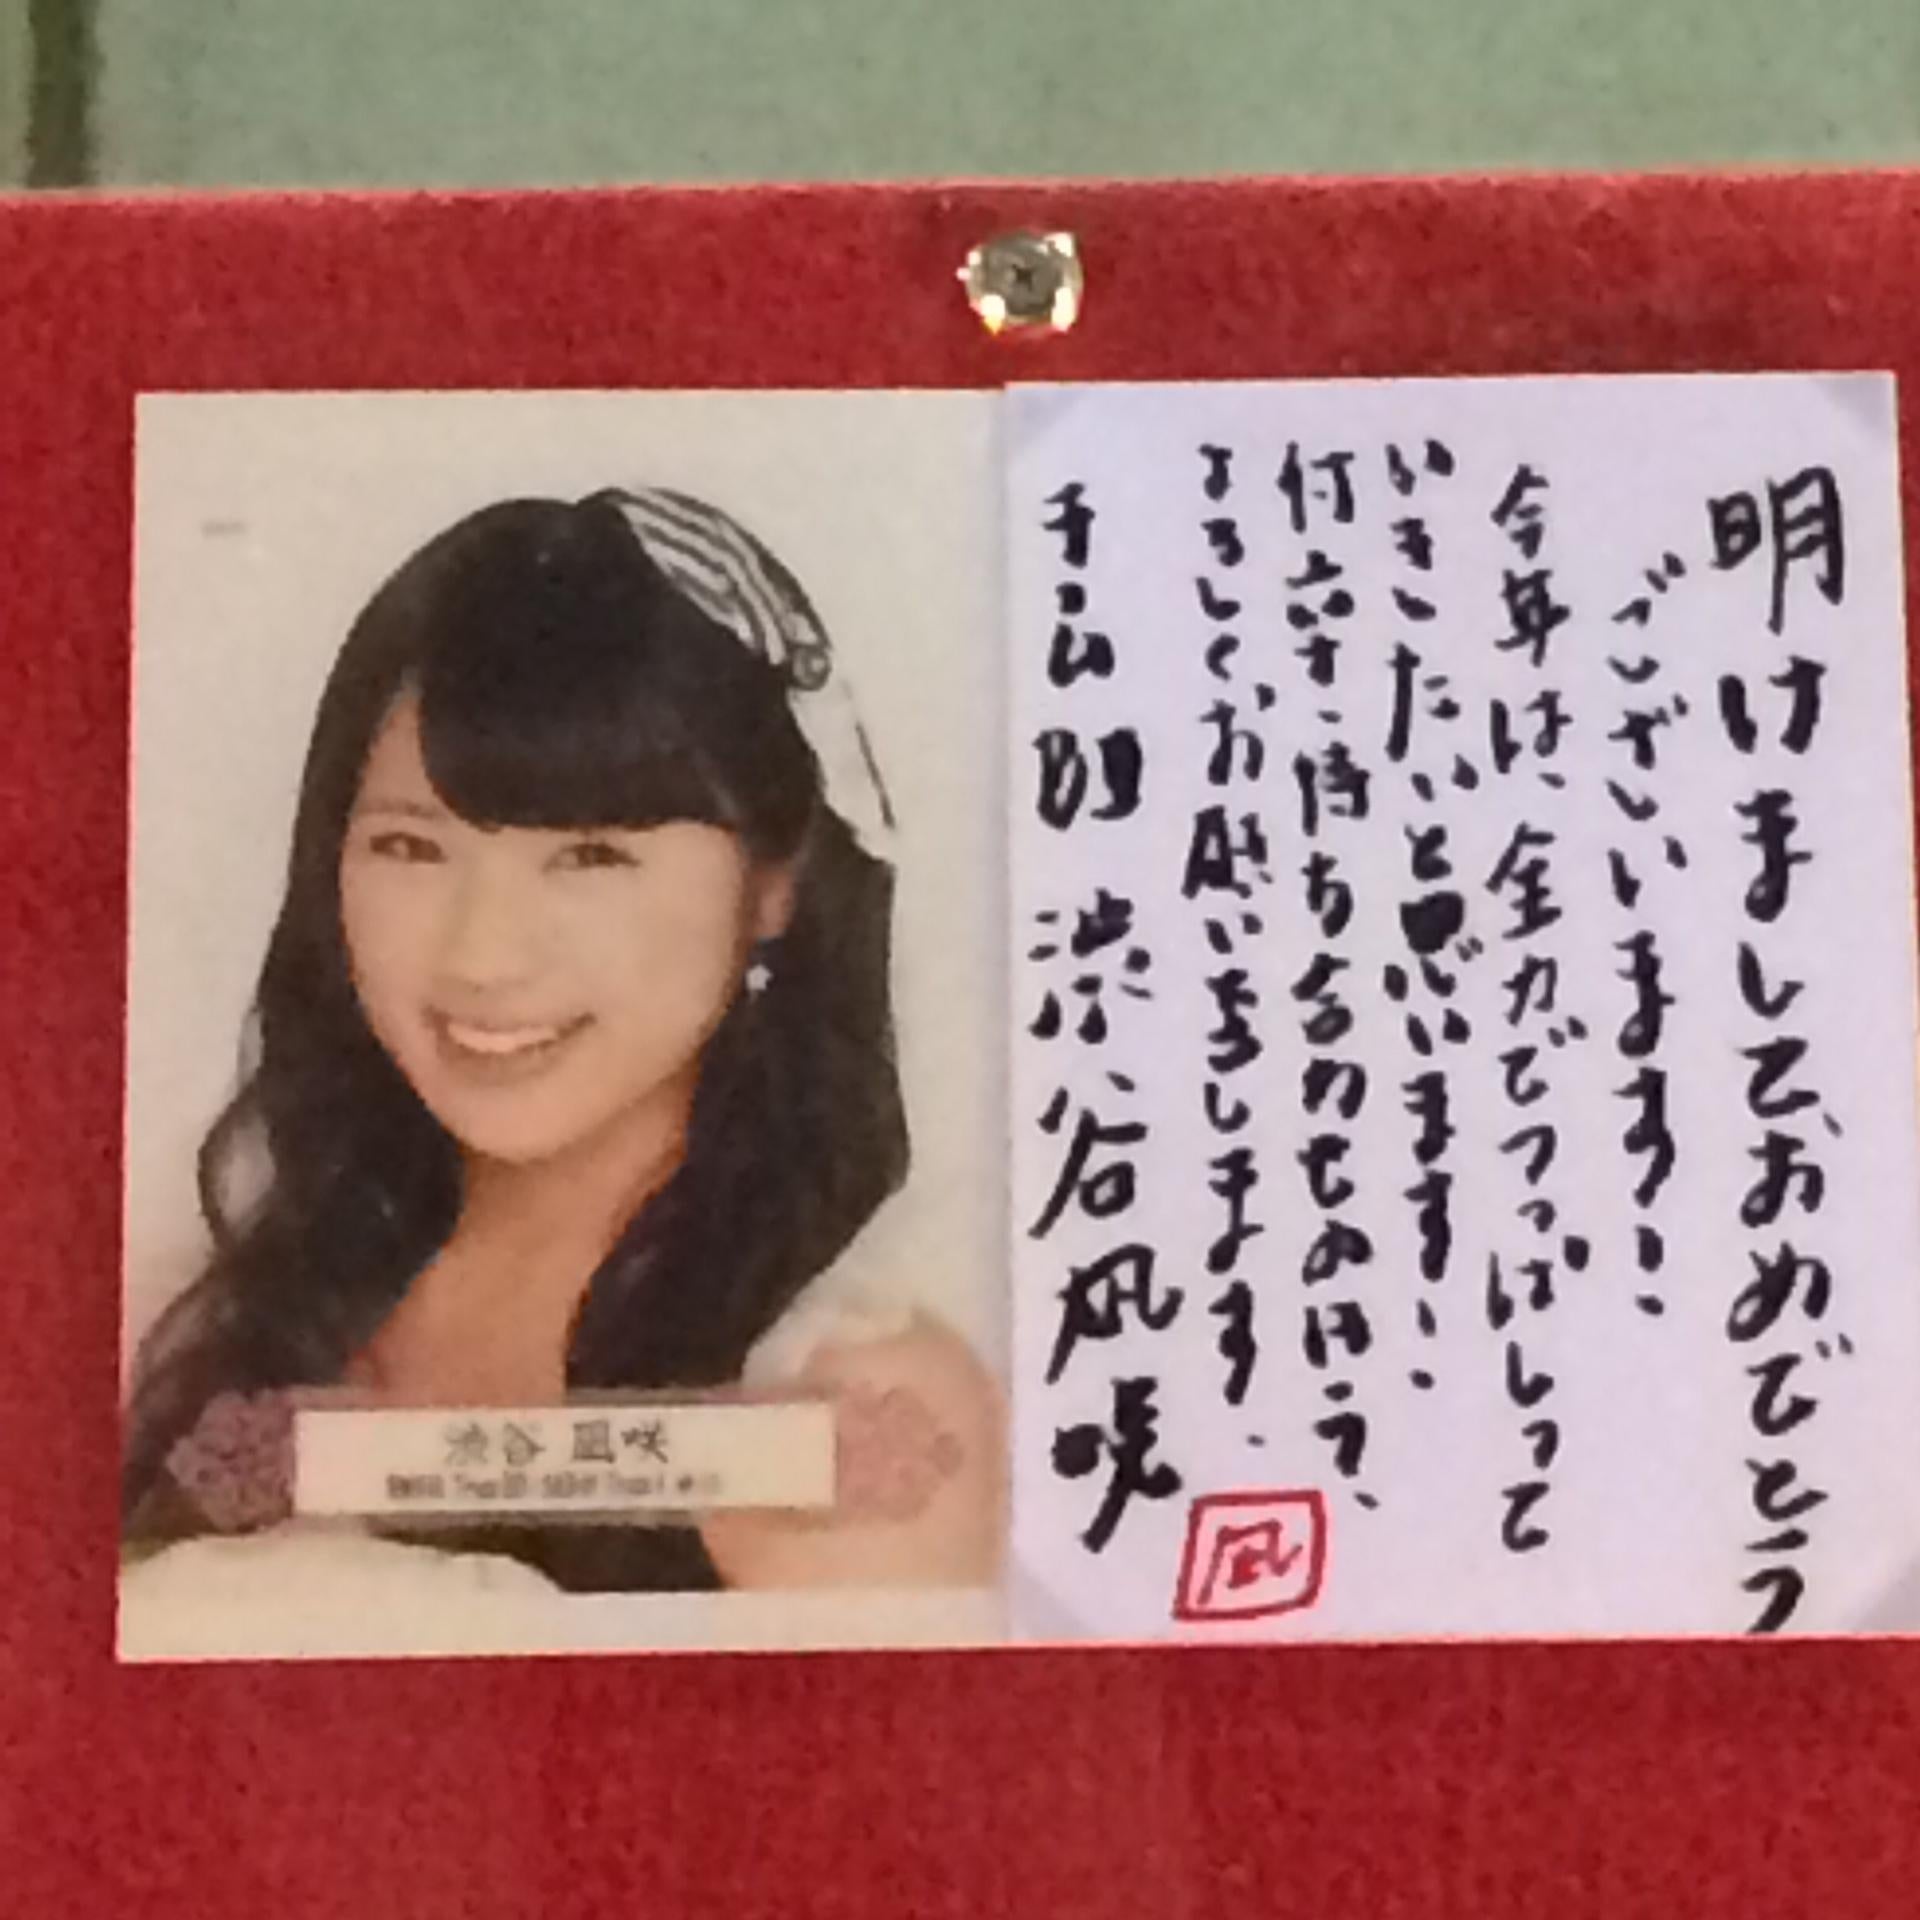 明けまして、おめでとう
ございます!
今年は、全力でつっぱしって
いきたいと思います!
待ち合わせのほう、
よろしくお願い致します.
チームBⅡ 渋谷凪咲
凪
渋谷 凪咲